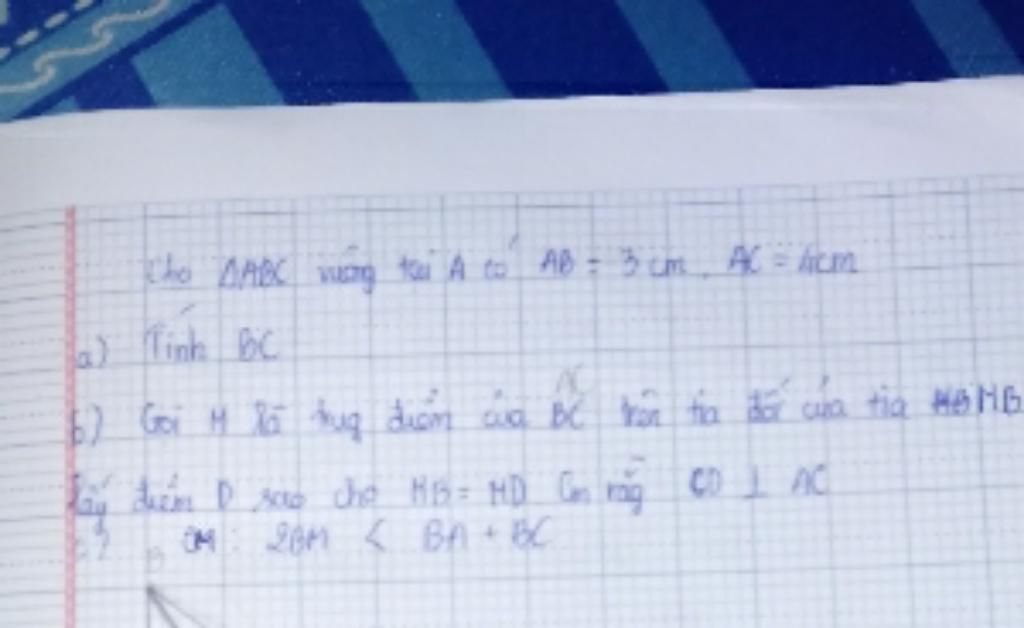 Cho ΔABC vuông tại A có AB = 3 cm, AC = 4cm
a) Tính BC
b) Gọi M là trug điểm của BC trên tia đối của tia MB
lấy điểm D sao cho MB = MD Cm rằg CD ⊥ AC
c) CM : 2BM < BA + BC
B